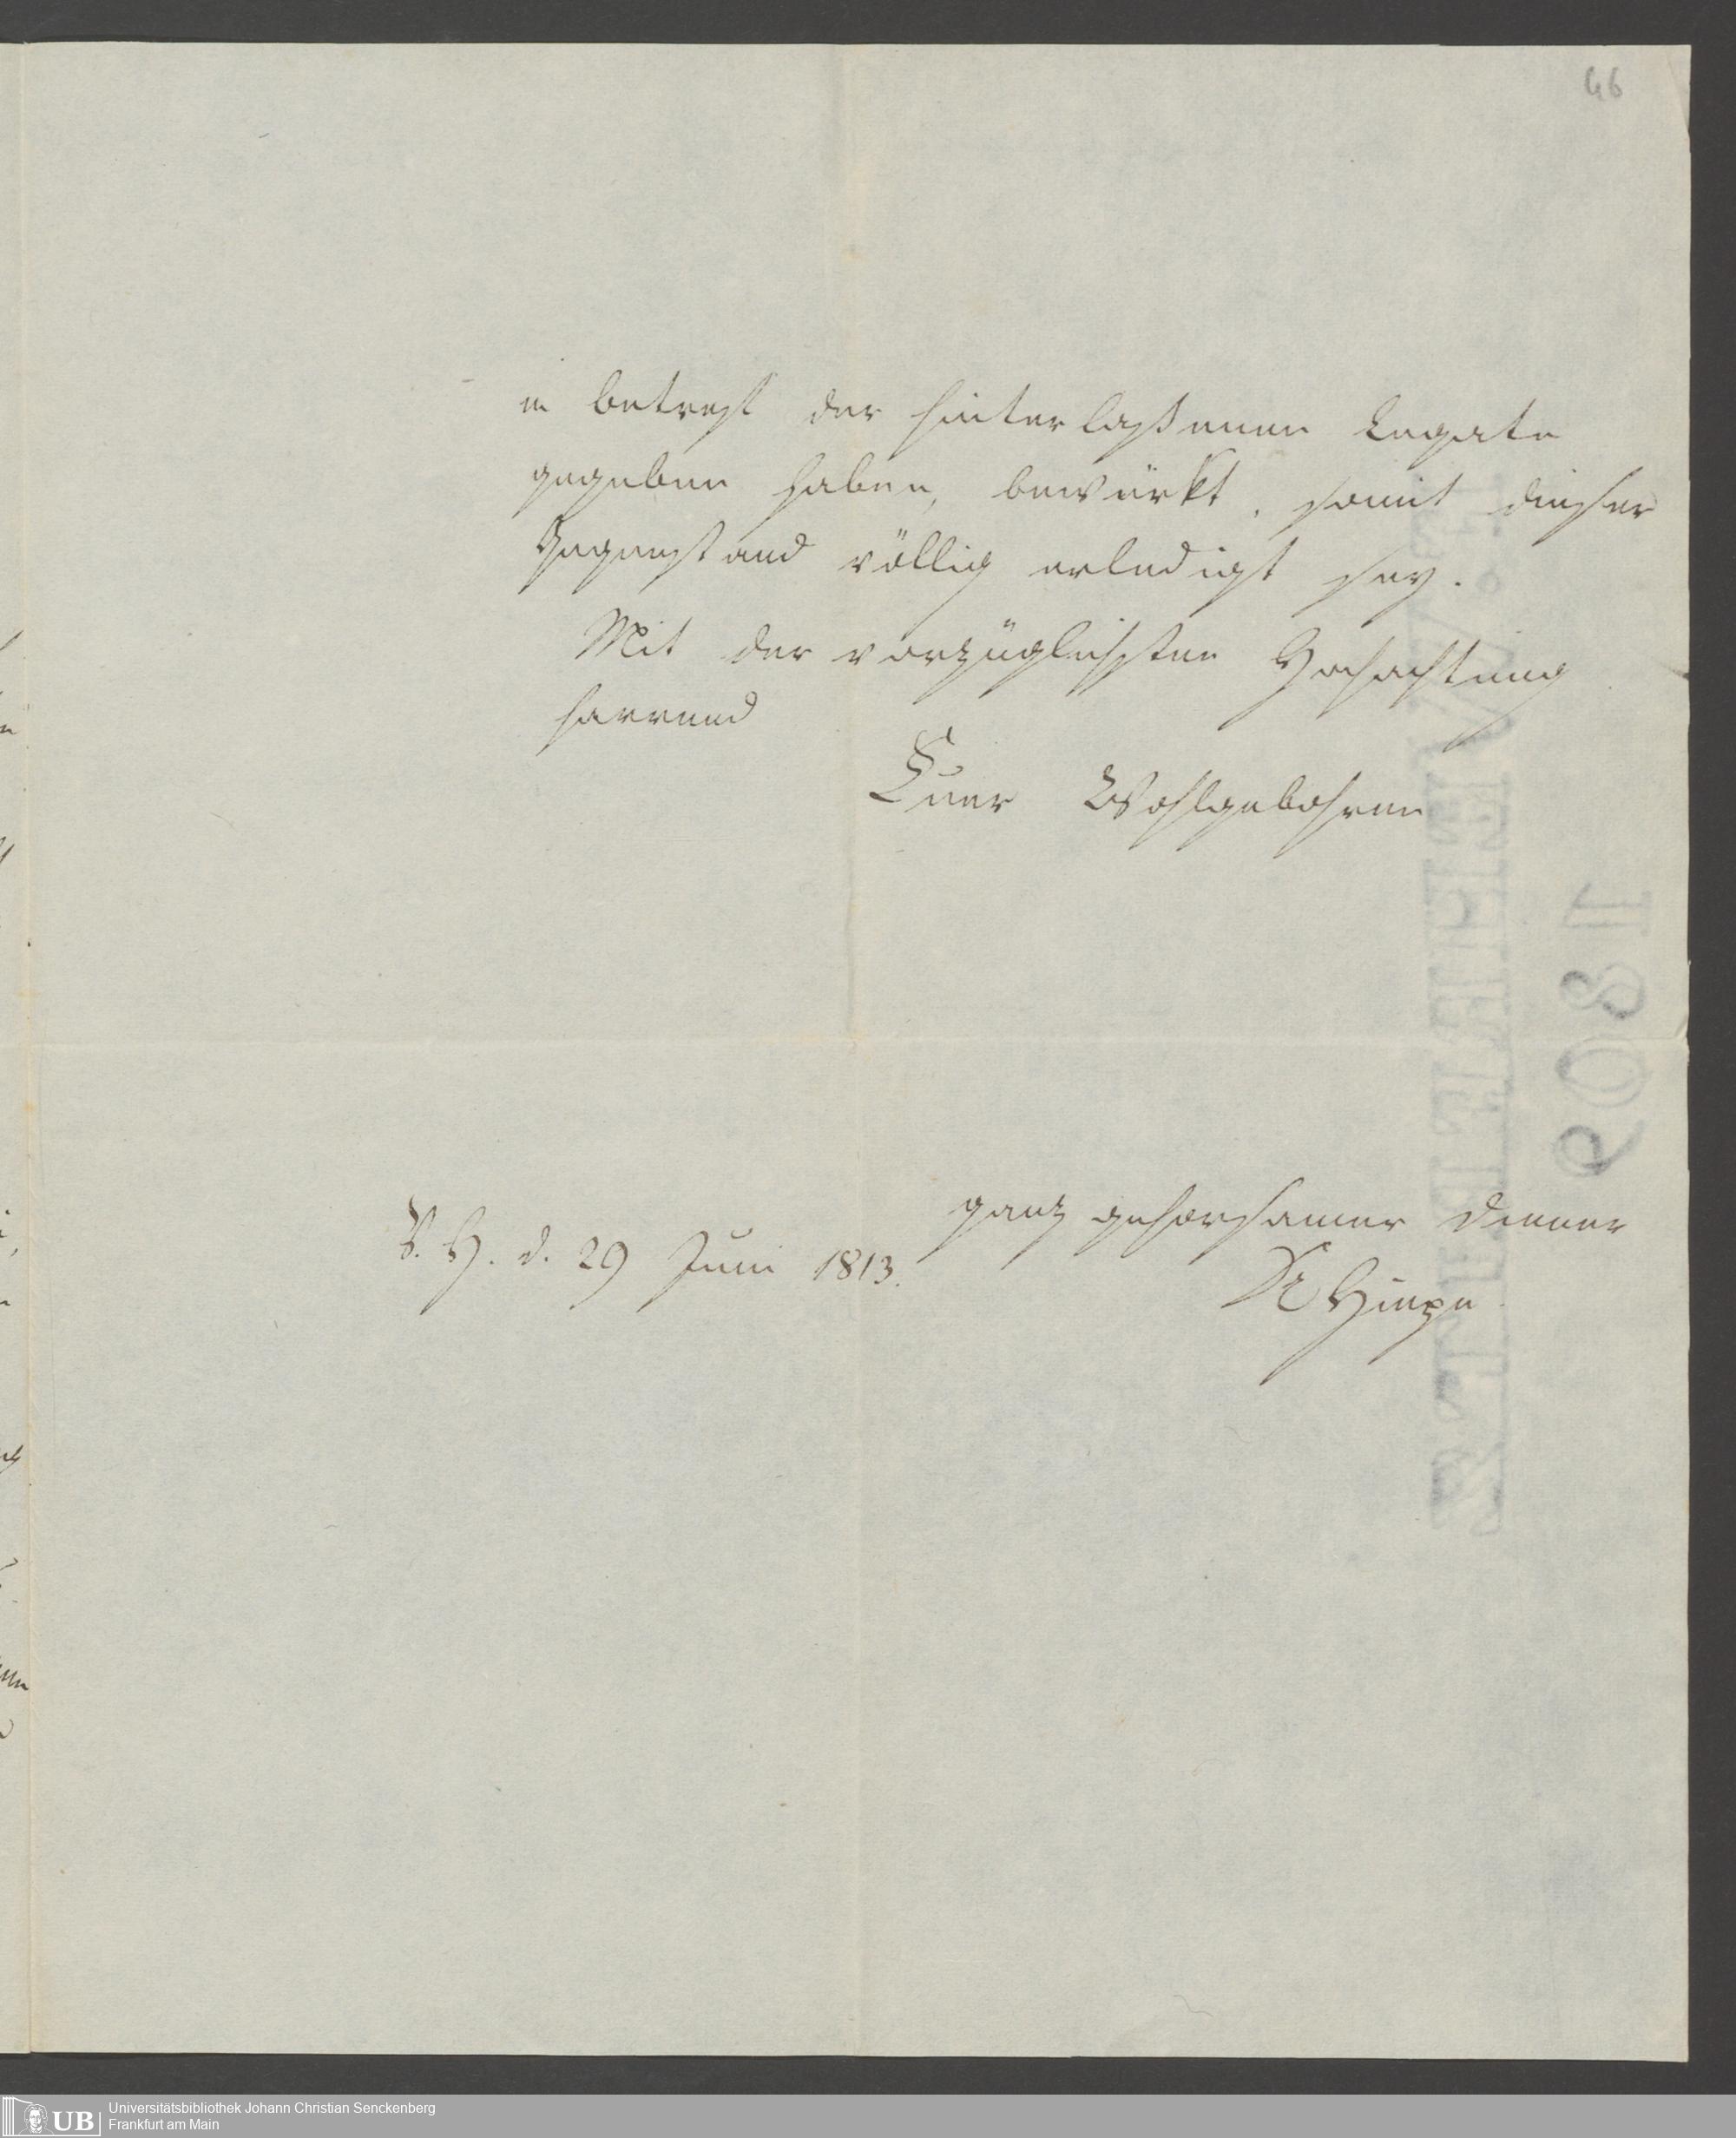 46
in betreff der hinterlaßenen Legate
gegeben haben, bewürkt, somit dieser
Gegenstand völlig erledigt sey.
Mit der vorzüglichsten Hochachtung
harrend
Euer Wohlgebohren
ganz gehorsamer Diener
V. H. d. 29 Juni 1813.
1809
UB
Universitätsbibliothek Johann Christian Senckenberg
Frankfurt am Main